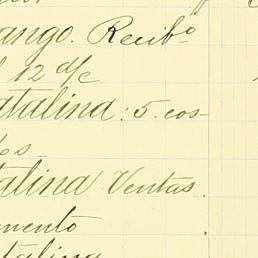 ango. Recibo
12 d/c
atalina: 5. cos-
os
talina Ventas.
mento
talina